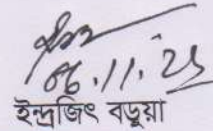 06.11.25
ইন্দ্ৰজিৎ বড়ুয়া